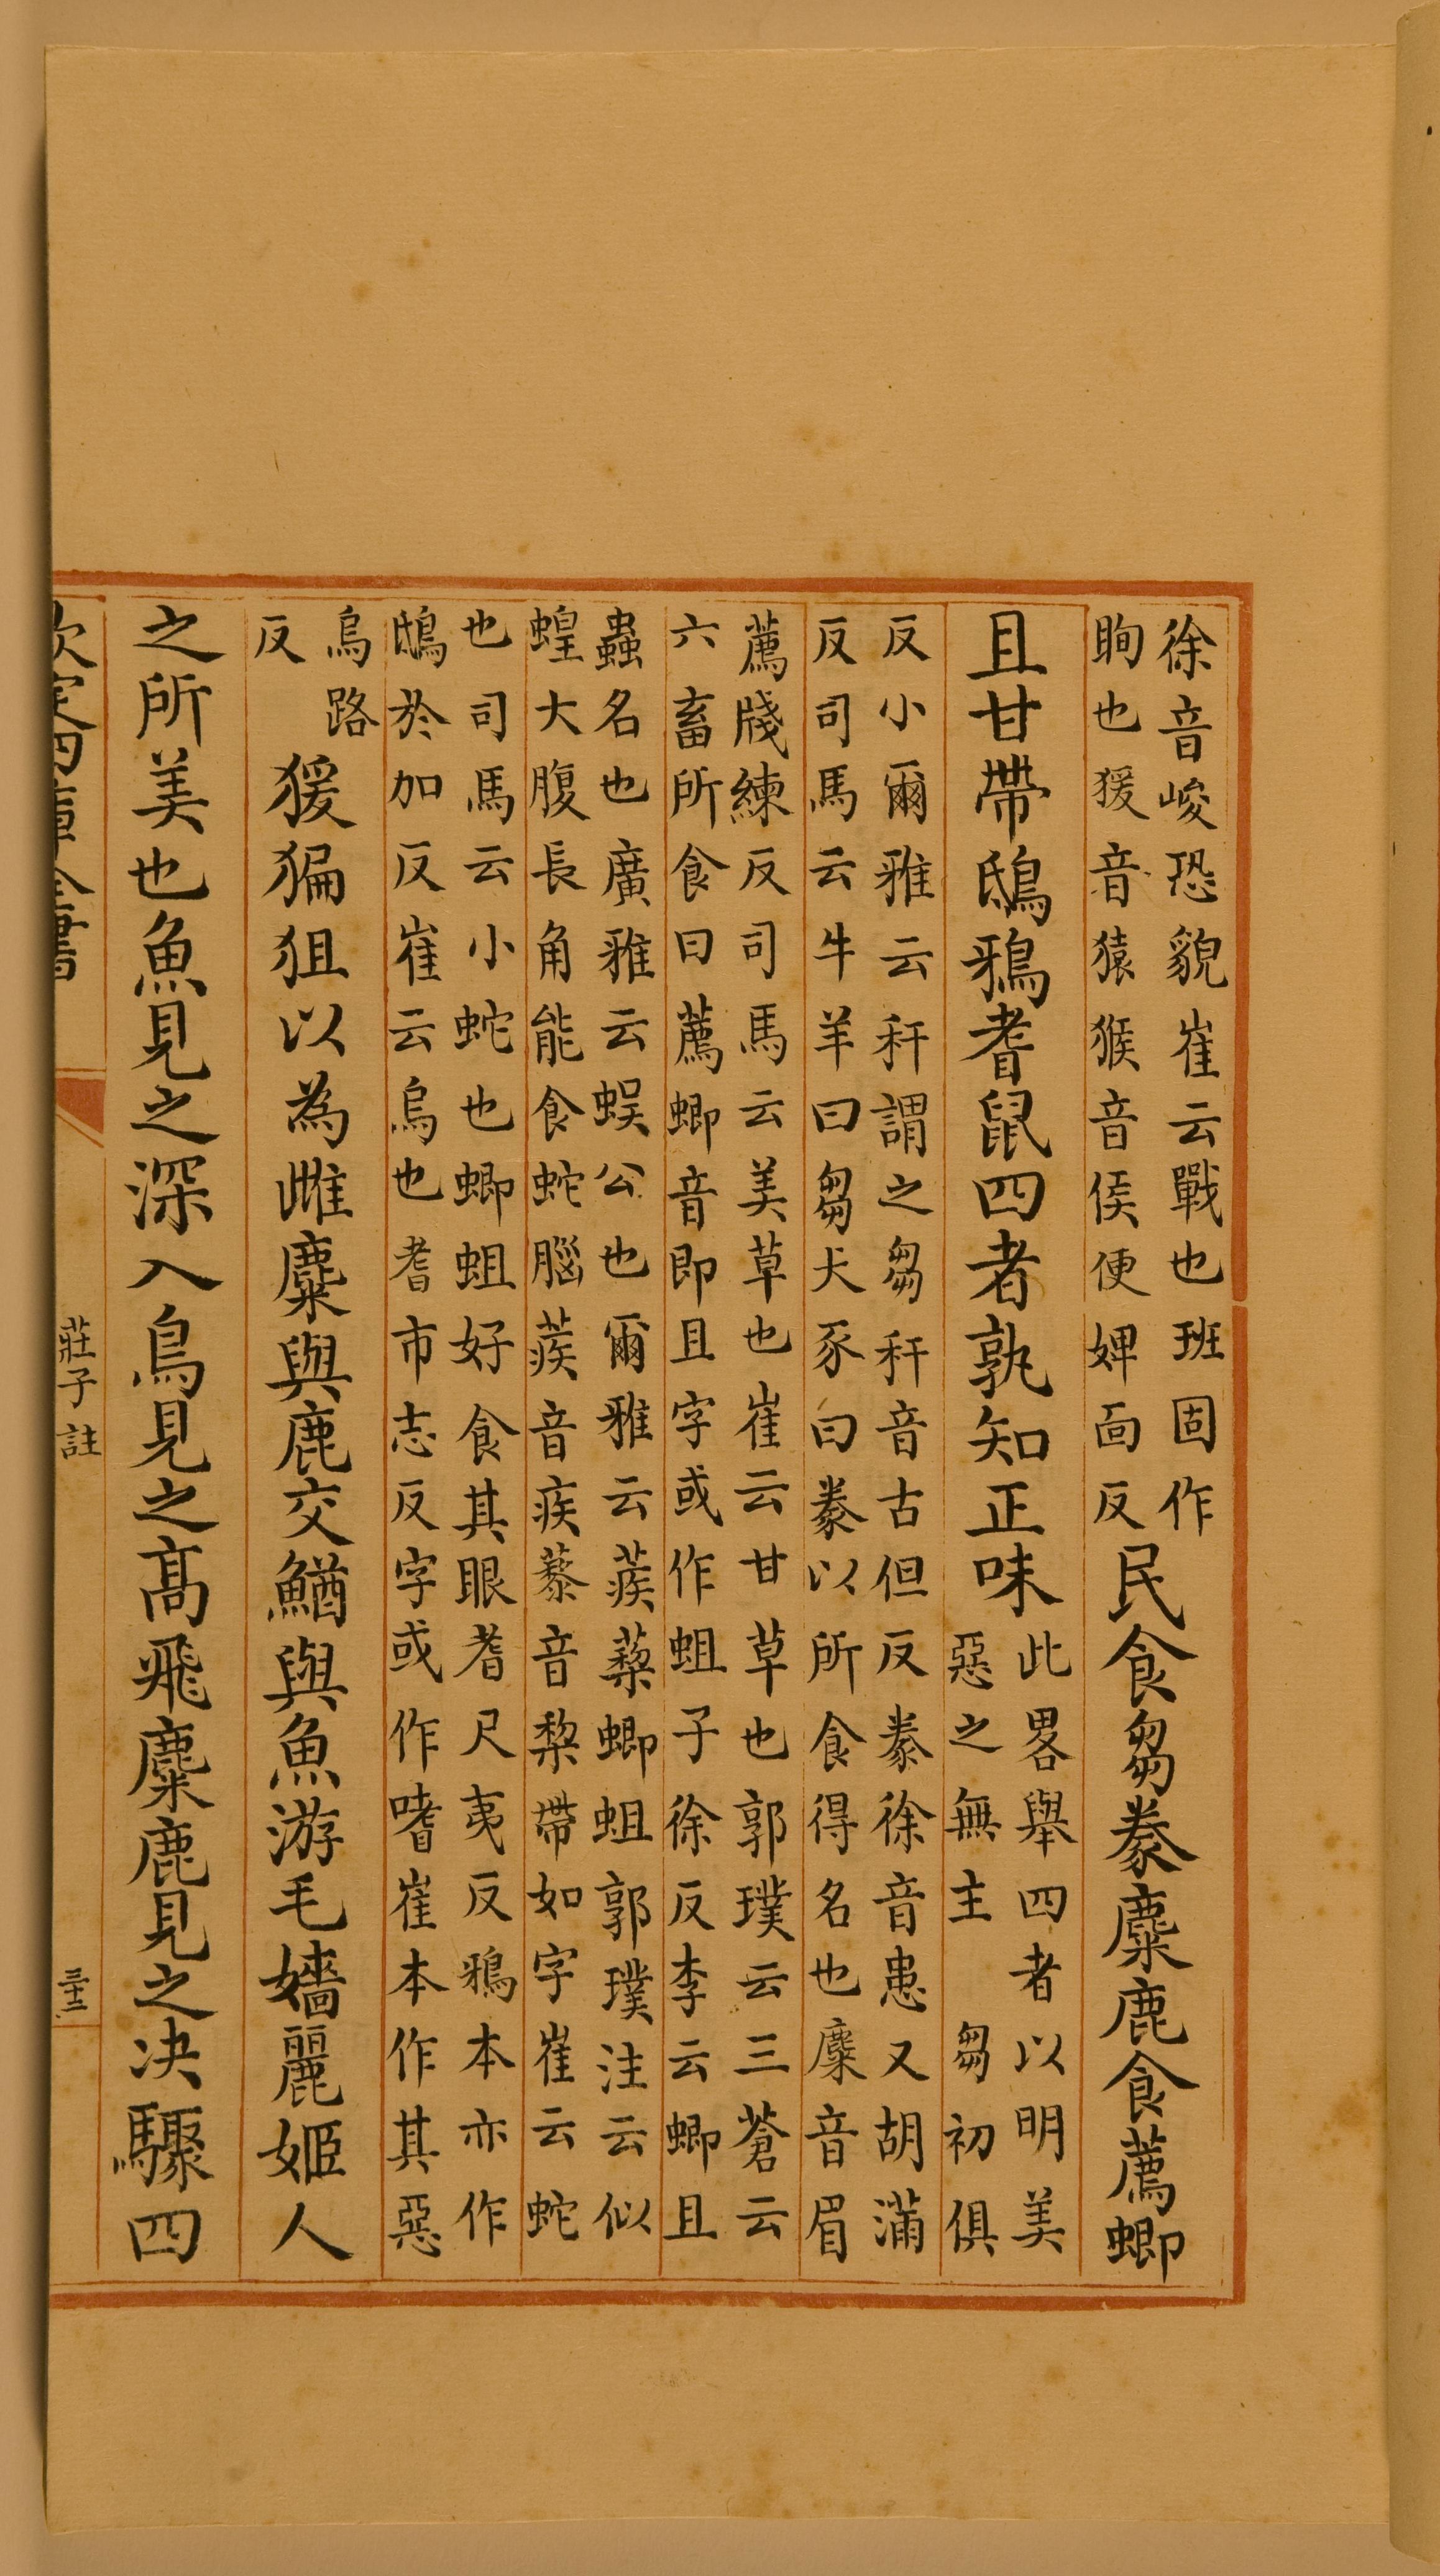 徐音峻恐貌崔云戰也班固作
眴也猨音猿猴音侯便婢面反
民食芻豢麋鹿食薦蝍
且甘帶鴟鴉耆鼠四者孰知正味
此畧舉四者以明美
惡之無主　芻初俱
反小爾雅云秆謂之芻秆音古但反豢徐音患又胡滿
反司馬云牛羊曰芻犬豕曰豢以所食得名也麋音眉
薦牋練反司馬云美草也崔云甘草也郭璞云三蒼云
六畜所食曰薦蝍音即且字或作蛆子徐反李云蝍且
蟲名也廣雅云蜈公也爾雅云蒺蔾蝍蛆郭璞注云似
蝗大腹長角能食蛇腦蒺音疾藜音棃帶如字崔云蛇
也司馬云小蛇也蝍蛆好食其眼耆尺夷反鴉本亦作
鵄於加反崔云烏也耆市志反字或作嗜崔本作其惡
烏路
反
猨猵狙以為雌麋與鹿交鰌與魚游毛嬙麗姬人
之所美也魚見之深入鳥見之高飛麋鹿見之決驟四
欽定四庫全書
莊子註
三十三